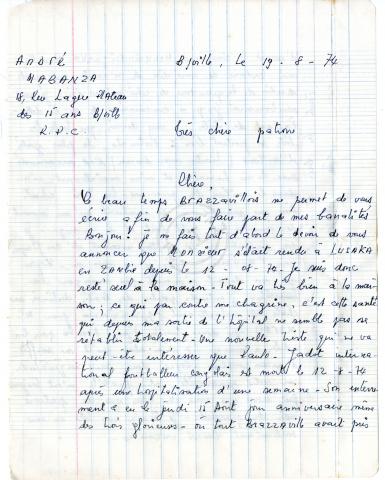 ANDRÉ B/ville, Le 19 - 8 - 74
MABANZA
18, Rue Lagué Plateau
des 15 ans B/ville
R.P.C. très chère patrone
Chère,
Ce beau temps BRAZZAVILLOIS me permet de vous
écrire afin de vous faire part de mes banalités
Bonjour! je me fais tout d'abord le devoir de vous
annoncer que MONSIEUR s'était rendu à LUSAKA
en ZAMBIE depuis le 12 - 08 - 74. Je suis donc
resté seul à la maison. Tout va très bien à la mai-
son; ce qui par contre me chagrine, c'est cette santé
qui depuis ma sortie de l'hôpital ne semble pas se
rétablir totalement. Une nouvelle triste qui ne va
peut-être intéresser que Paulo. interna-
tional footballeur congolais est mort le 12-8-74
après une hospitalisation d'une semaine. Son enterre
ment a eu le jeudi 15 Août jour anniversaire même
des trois glorieuses - où tout BRAZZAVILLE avait pris